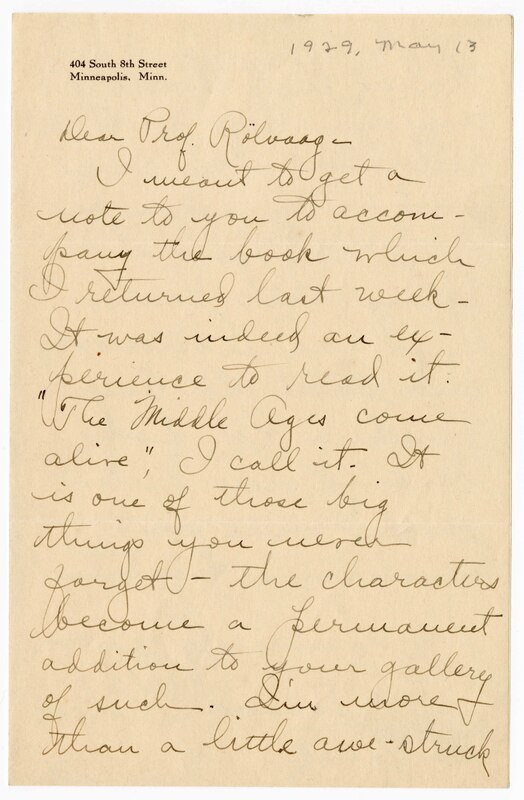 1929, May 13
404 South 8th Street
Minneapolis, Minn.
Dear Prof. Rölvaag-
I meant to get a
note to you to accom-
pany the book which
I returned last week-
It was indeed an ex-
perience to read it.
"The Middle Ages come
alive", I call it. It
is one of those big
things you never
forget - the characters
become a permanent
addition to your gallery
of such. I'm more
than a little awe-struck